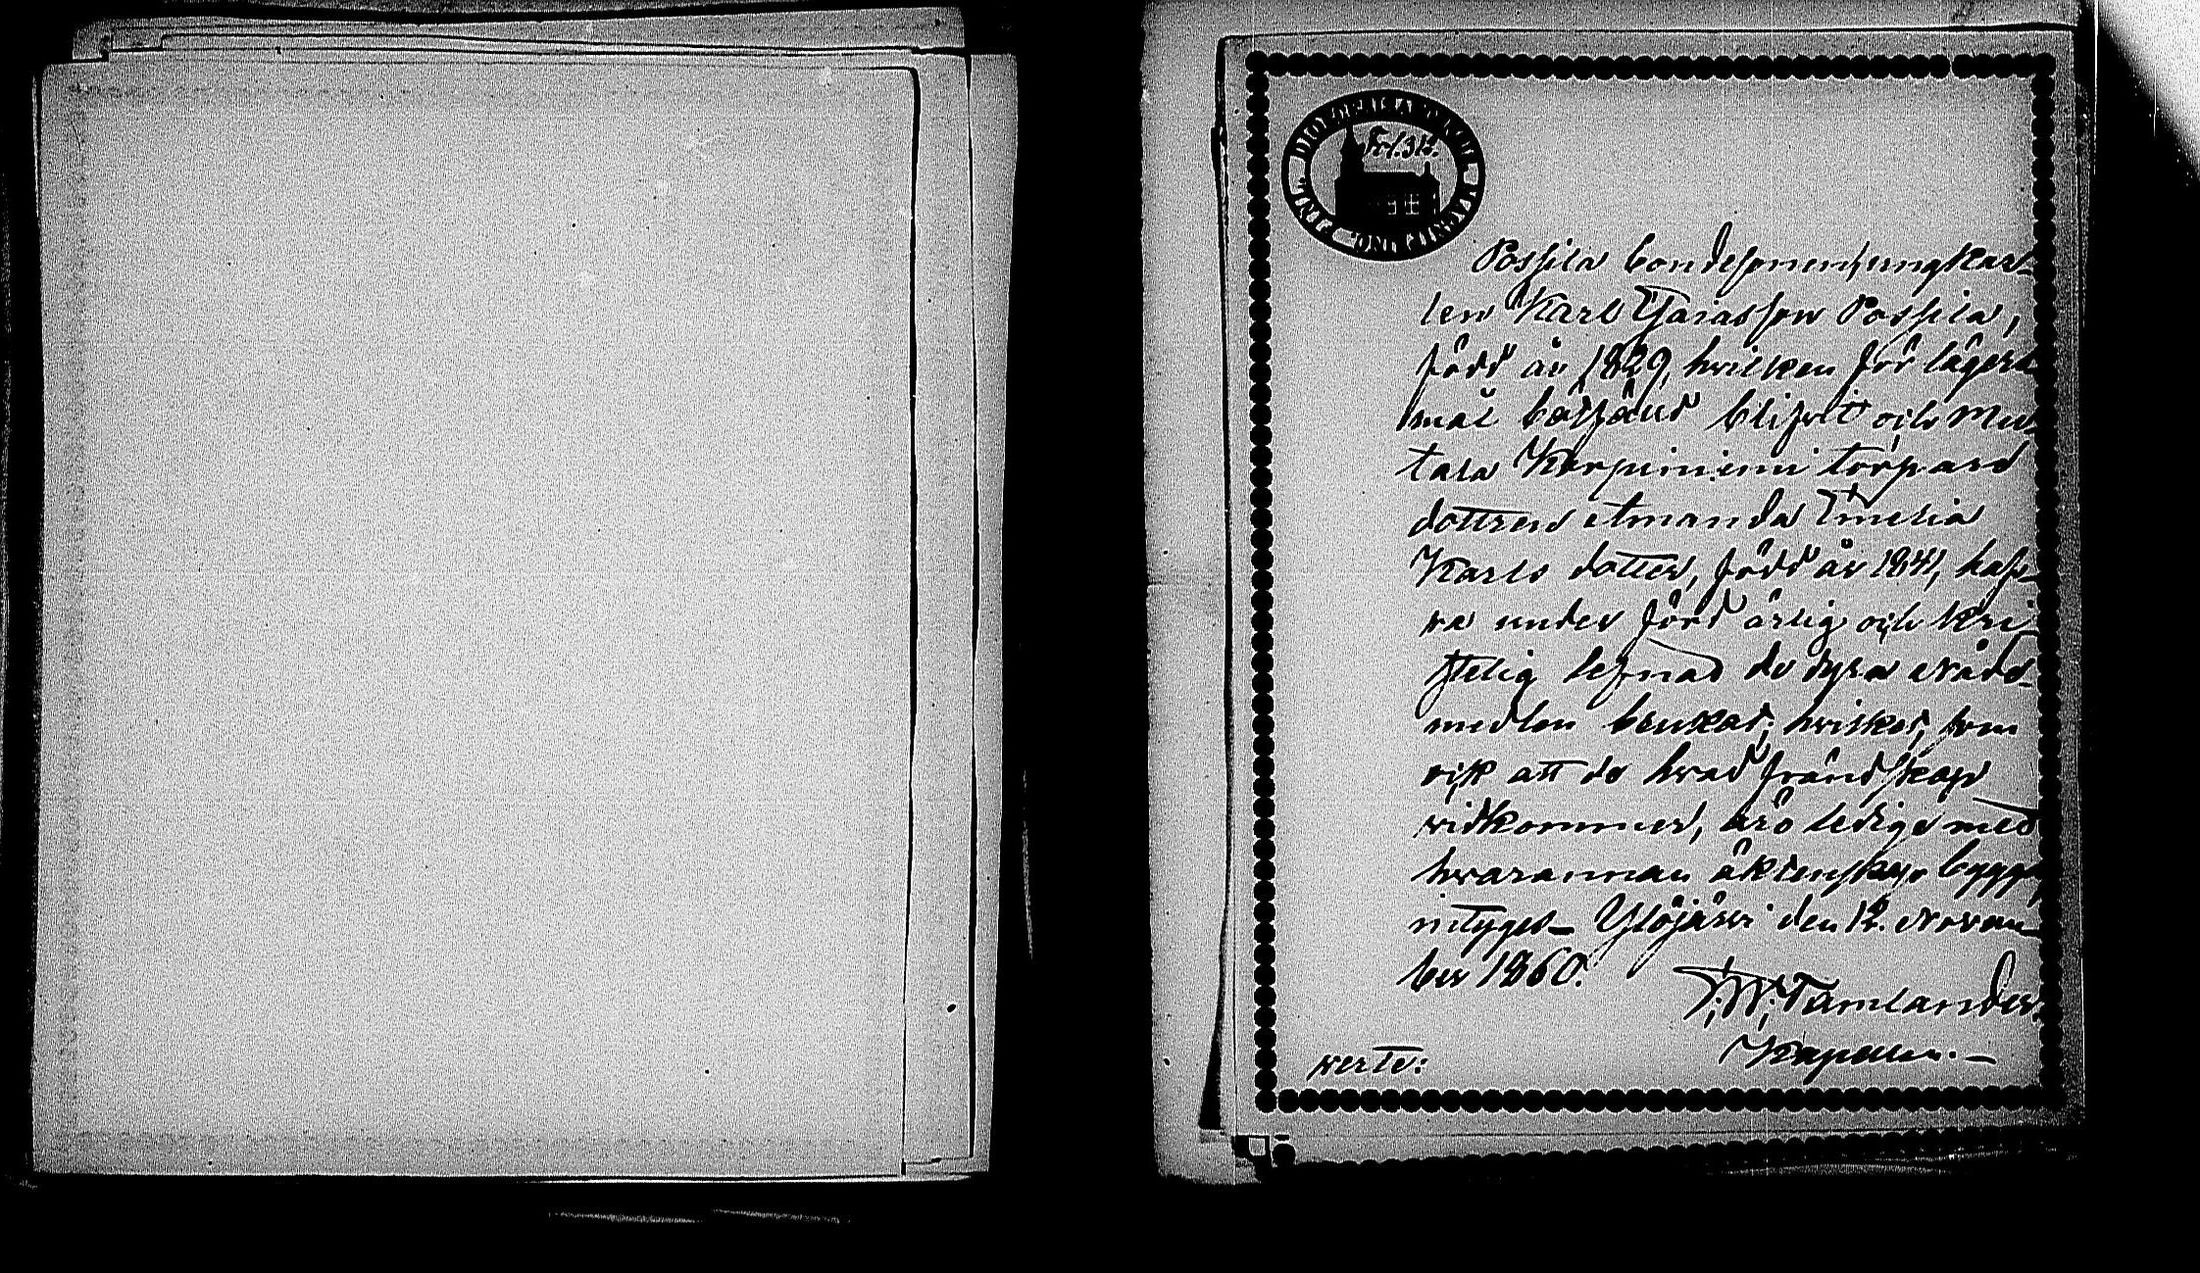 Fol. 312.
Possila bondesonen, ungkar-
len Karl Esaiasson Possila,
född år 1829, hvilken för lägers-
mål botfäld blifvit och Mu-
tala Kerpuniemi torpare
dottren Amanda Emelia
Karls dotter, född år 1841, haf-
va under förd ärlig och kri-
stelig lefnad de dyra nåde-
medlen brukat; hvilket, som
ock att de hvad frändskap
vidkommer, äro ledige med
hvarannan äktenskap bygga,
intygas_ Ylöjärvi den 12. Novem-
ber 1860.
F. W. Tamlander.
Kapellan._
verte: